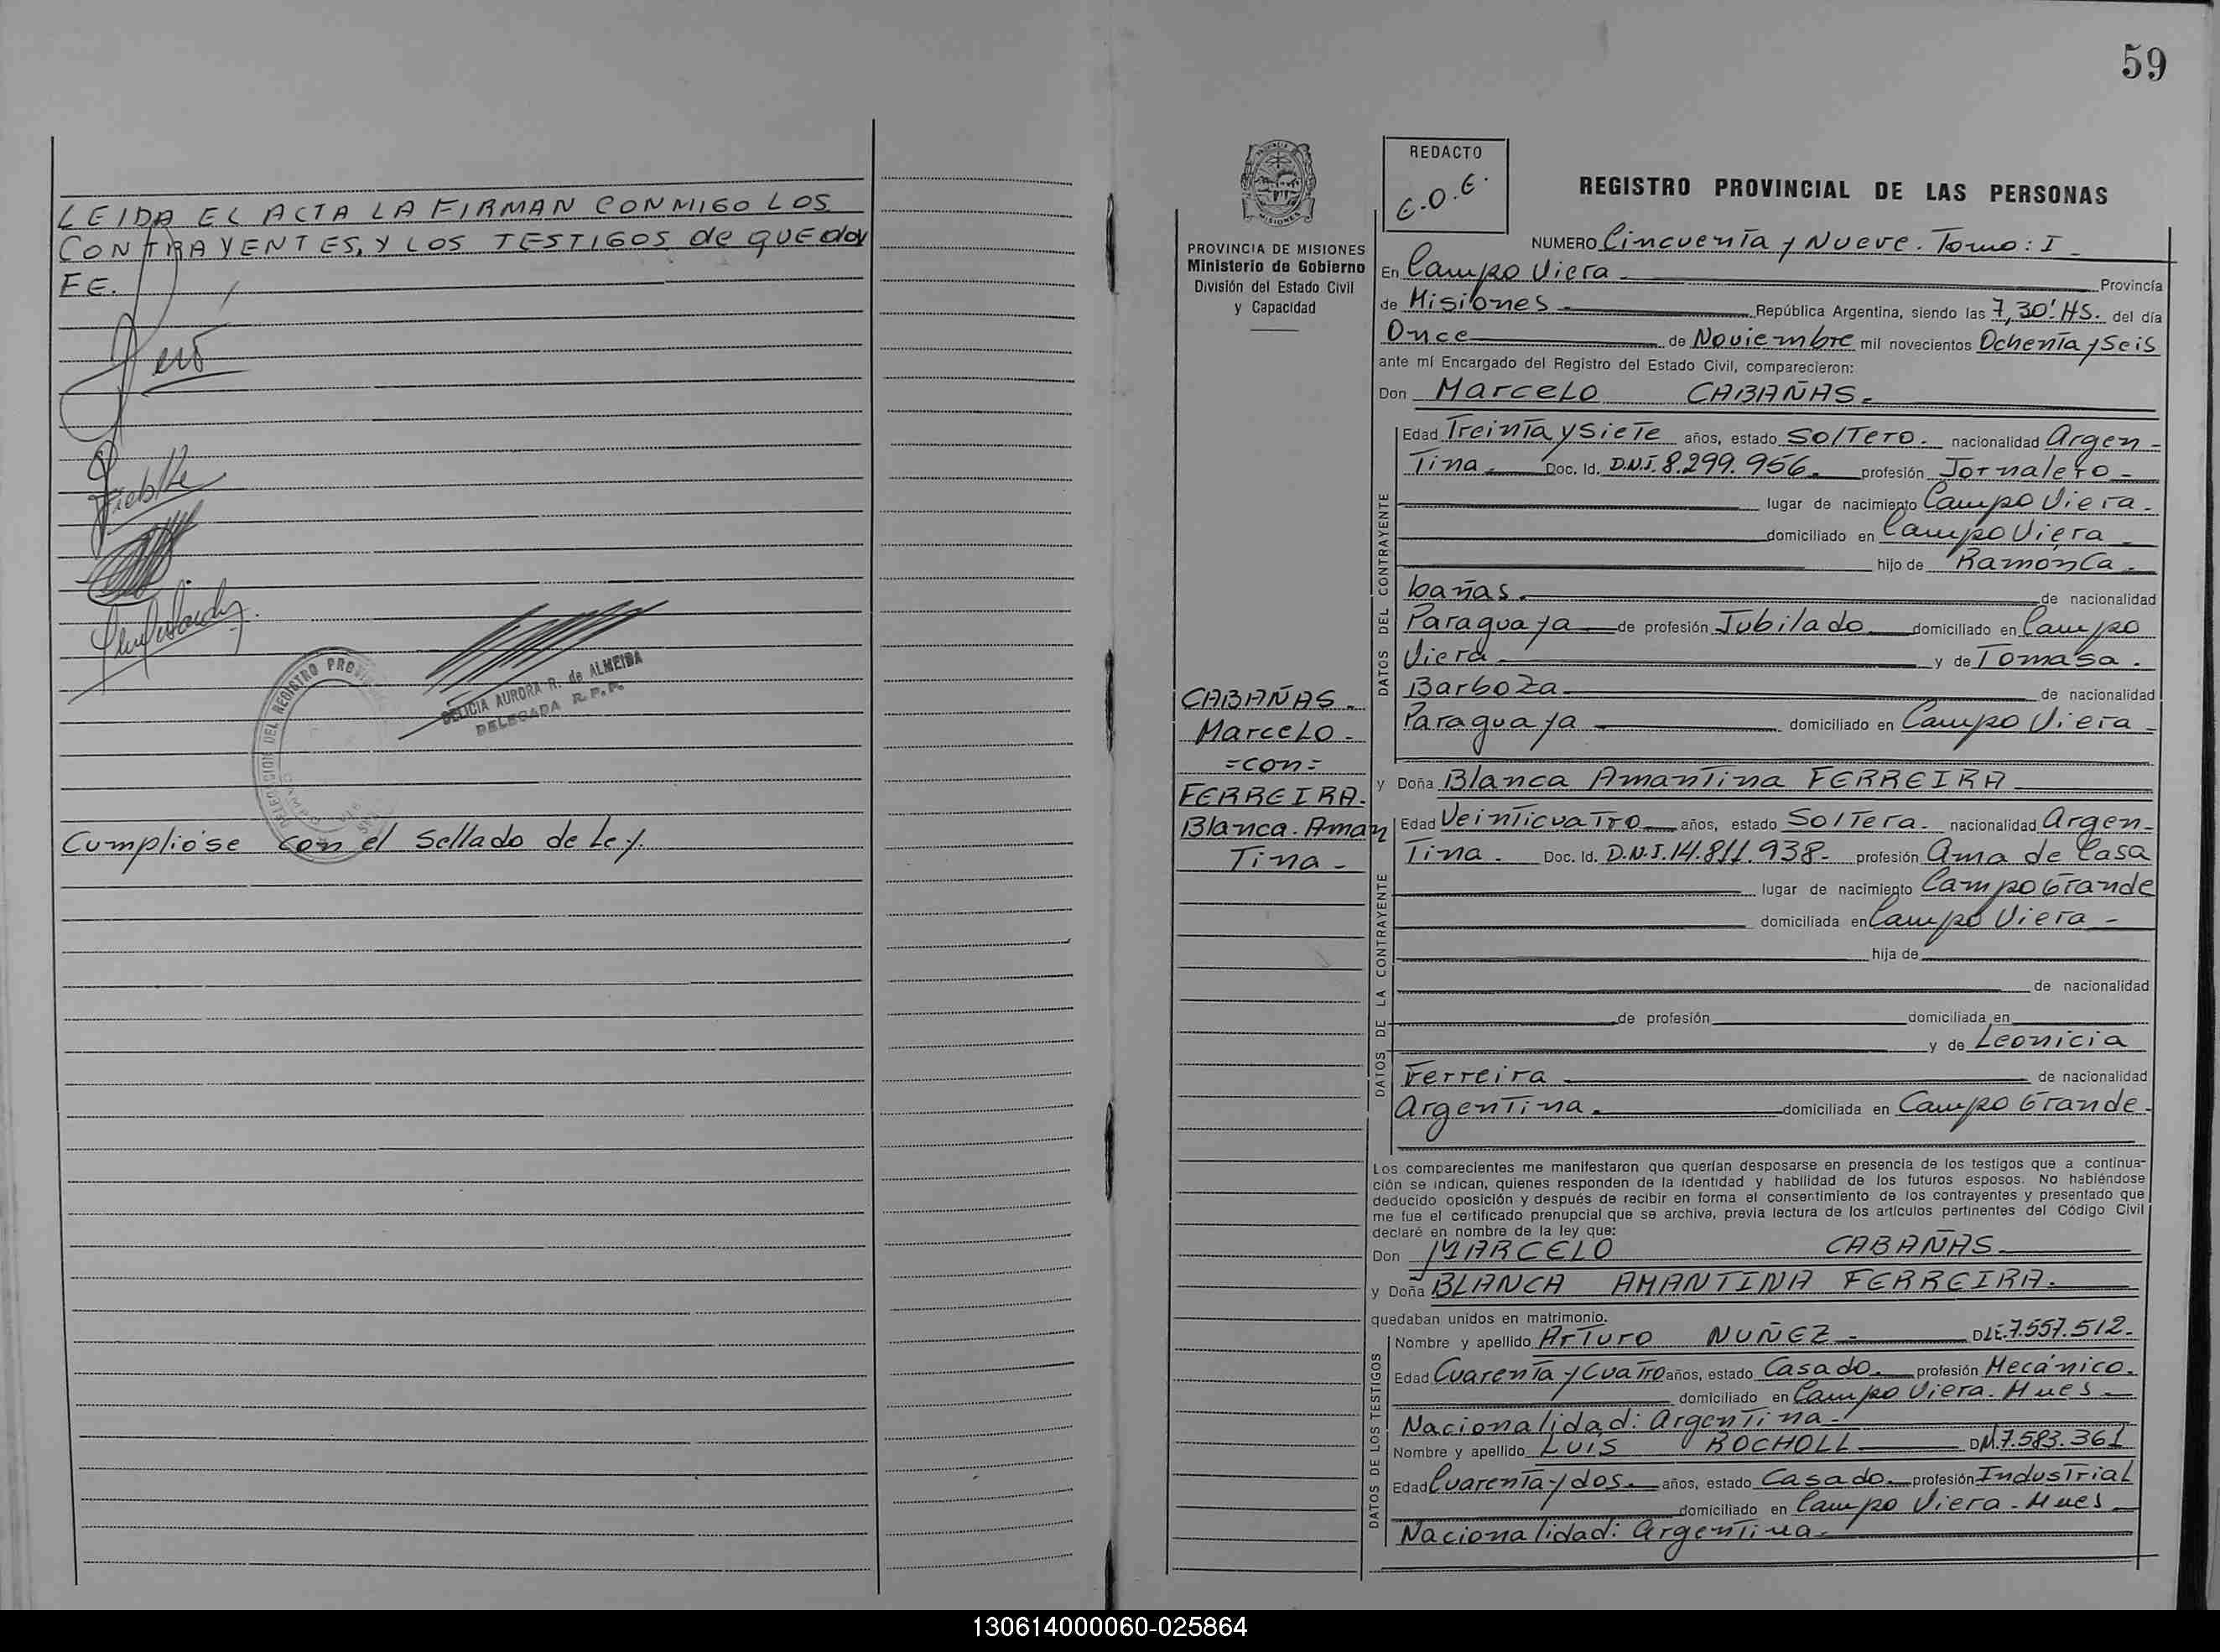 LEIDA EL ACTA LA FIRMAN CONMIGO LOS
CONTRAYENTES, Y LOS TESTIGOS de que doy
FE.
DELICIA AURORA R. de ALMEIDA
DELEGADA R. P. P.
DEL REGISTRO PROVINCIAL
Cumplióse con el Sellado de Ley.
59
REDACTO
E.O.E.
REGISTRO PROVINCIAL DE LAS PERSONAS
PROVINCIA DE MISIONES
Ministerio de Gobierno
División del Estado Civil
y Capacidad
CABAÑAS.
Marcelo.
=con=
FERREIRA.
Blanca. Aman
Tina-
NUMERO Cincuenta y Nueve. Tomo: I
En Campo Viera Provincia
de Misiones República Argentina, siendo las 7,30' HS. del día
Once de Noviembre mil novecientos Ochenta y Seis
ante mí Encargado del Registro del Estado Civil, comparecieron:
Don Marcelo CABAÑAS.
DATOS DEL CONTRAYENTE
Edad Treinta y Siete años, estado Soltero. nacionalidad Argen-
Tina. Doc. Id. D.N.I. 8.299.956. profesión Jornalero-
lugar de nacimiento Campo Viera.
domiciliado en Campo Viera
hijo de Ramón Ca-
bañas. de nacionalidad
Paraguaya de profesión Jubilado domiciliado en Campo
Viera y de Tomasa.
Barboza de nacionalidad
Paraguaya domiciliado en Campo Viera
y Doña Blanca Amantina FERREIRA
DATOS DE LA CONTRAYENTE
Edad Veinticuatro años, estado Soltera. nacionalidad Argen-
Tina. Doc. Id. D.N.I. 14.811.938- profesión Ama de Casa
lugar de nacimiento Campo Grande
domiciliada en Campo Viera-
hija de
de nacionalidad
de profesión domiciliada en
y de Leonicia
Ferreira de nacionalidad
Argentina. domiciliada en Campo Grande.
Los comparecientes me manifestaron que querían desposarse en presencia de los testigos que a continua-
ción se indican, quienes responden de la identidad y habilidad de los futuros esposos. No habiéndose
deducido oposición y después de recibir en forma el consentimiento de los contrayentes y presentado que
me fue el certificado prenupcial que se archiva, previa lectura de los artículos pertinentes del Código Civil
declaré en nombre de la ley que:
Don MARCELO CABAÑAS
y Doña BLANCA AMANTINA FERREIRA.
quedaban unidos en matrimonio.
DATOS DE LOS TESTIGOS
Nombre y apellido Arturo NUÑEZ- DLE.7.557.512.
Edad Cuarenta y Cuatro años, estado Casado. profesión Mecánico.
domiciliado en Campo Viera. Mnes
Nacionalidad: Argentina-
Nombre y apellido LUIS ROCHOLL DM.7.583.361
Edad Cuarenta y dos. años, estado Casado. profesión Industrial
domiciliado en Campo Viera. Mnes
Nacionalidad: Argentina.
130614000060-025864